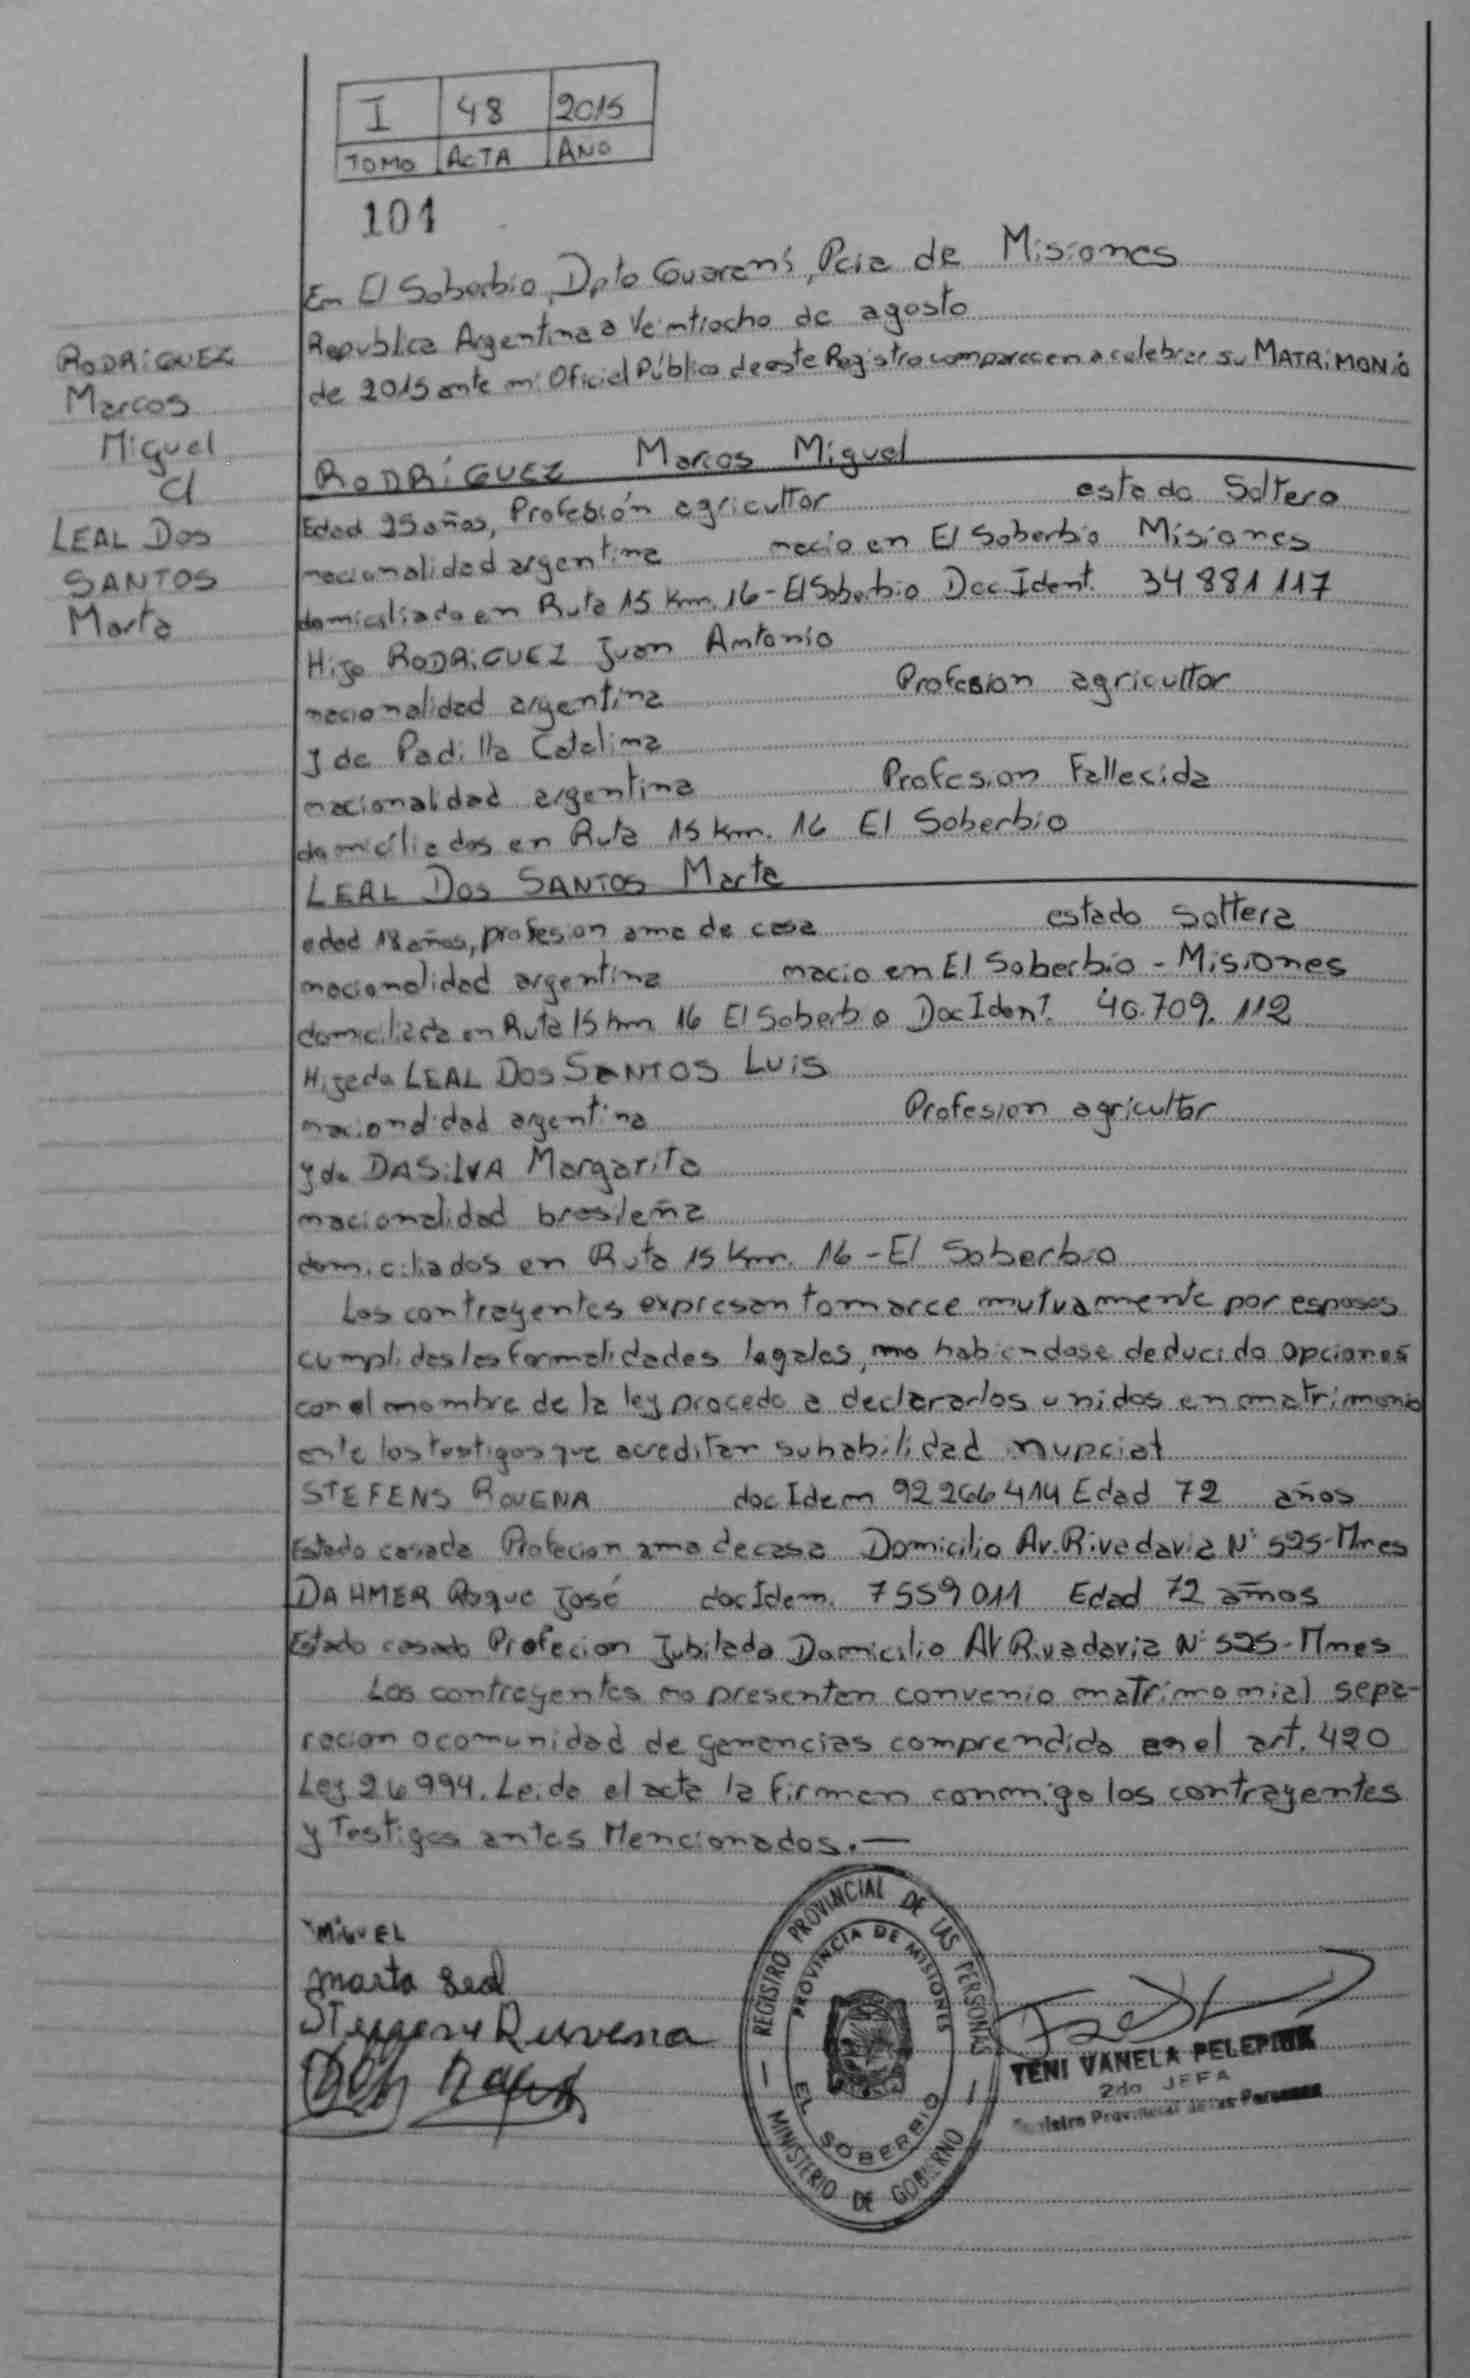 I 48 2015
TOMO ACTA AÑO
101
En El Soberbio, Dpto Guaraní, Pcia de Misiones
Republica Argentina a Veintiocho de agosto
de 2015 ante mi Oficial Público de este Registro comparecen a celebrar su MATRIMONIO
RODRIGUEZ
Marcos
Miguel
c/
LEAL DOS
SANTOS
Marta
RODRÍGUEZ Marcos Miguel
Edad 25 años, Profesión agricultor estado Soltero
nacionalidad argentina nacio en El Soberbio Misiones
domiciliado en Ruta 15 Km. 16 - El Soberbio Doc Ident. 34 881 117
Hijo RODRIGUEZ Juan Antonio
nacionalidad argentina Profesion agricultor
y de Padilla Catalina
nacionaldad argentina Profesion Fallecida
domicíliados en Ruta 15 Km. 16 El Soberbio
LEAL DOS SANTOS Marta
edad 18 años, profesion ama de casa estado Soltera
nacionalidad argentina nacio en El Soberbio - Misiones
domiciliada en Ruta 15 km 16 El Soberbio Doc Ident. 40.709.112
Hija de LEAL DOS SANTOS LUIS
nacionalidad argentina Profesion agricultor
y de DASILVA Margarita
nacionalidad brasileña
domiciliados en Ruta 15 Km. 16 - El Soberbio
Los contrayentes expresan tomarce mutuamente por esposos
cumplidas las formalidades legales, no habiendose deducido opciones
con el nombre de la ley procedo a declararlos unidos en matrimonio
ante los testigos que acreditan su habilidad nupcial
STEFENS ROVENA doc Idem 92 266 414 Edad 72 años
Estado casada Profecion ama de casa Domicilio Av. Rivadavia N° 525 - Mnes
DAHMER Roque José doc Idem. 7559011 Edad 72 años
Estado casado Profecion Jubilado Domicilio AV Rivadavia N° 525 - Mnes
Los contrayentes no presentan convenio matrimonial sepa-
racion o comunidad de ganancias comprendido en el art. 420
Ley 26994. Leido el acta la firman conmigo los contrayentes
y Testigos antes Mencionados.—
MIGUEL
marta Leal
Steffens Ruvena
REGISTRO PROVINCIAL DE LAS PERSONAS
PROVINCIA DE MISIONES
EL SOBERBIO
MINISTERIO DE GOBIERNO
YENI VANELA
2do JEFA
Registro Provincial de las Personas